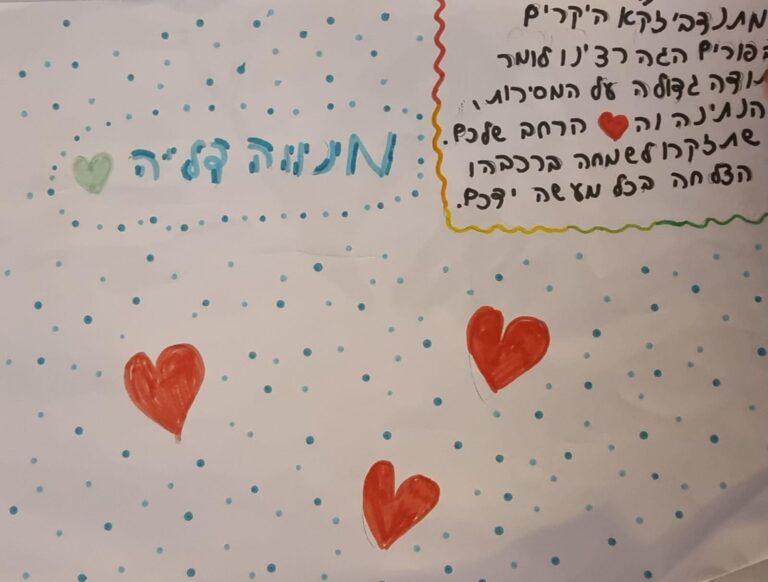 מתנדבי זקא היקרים
בפורים הזה רצינו לומר
תודה גדולה על המסירות,
הנתינה וה❤ הרחב שלכם.
לשמחה ברכה ו
הצלחה בכל מעשה ידכם.
דליה